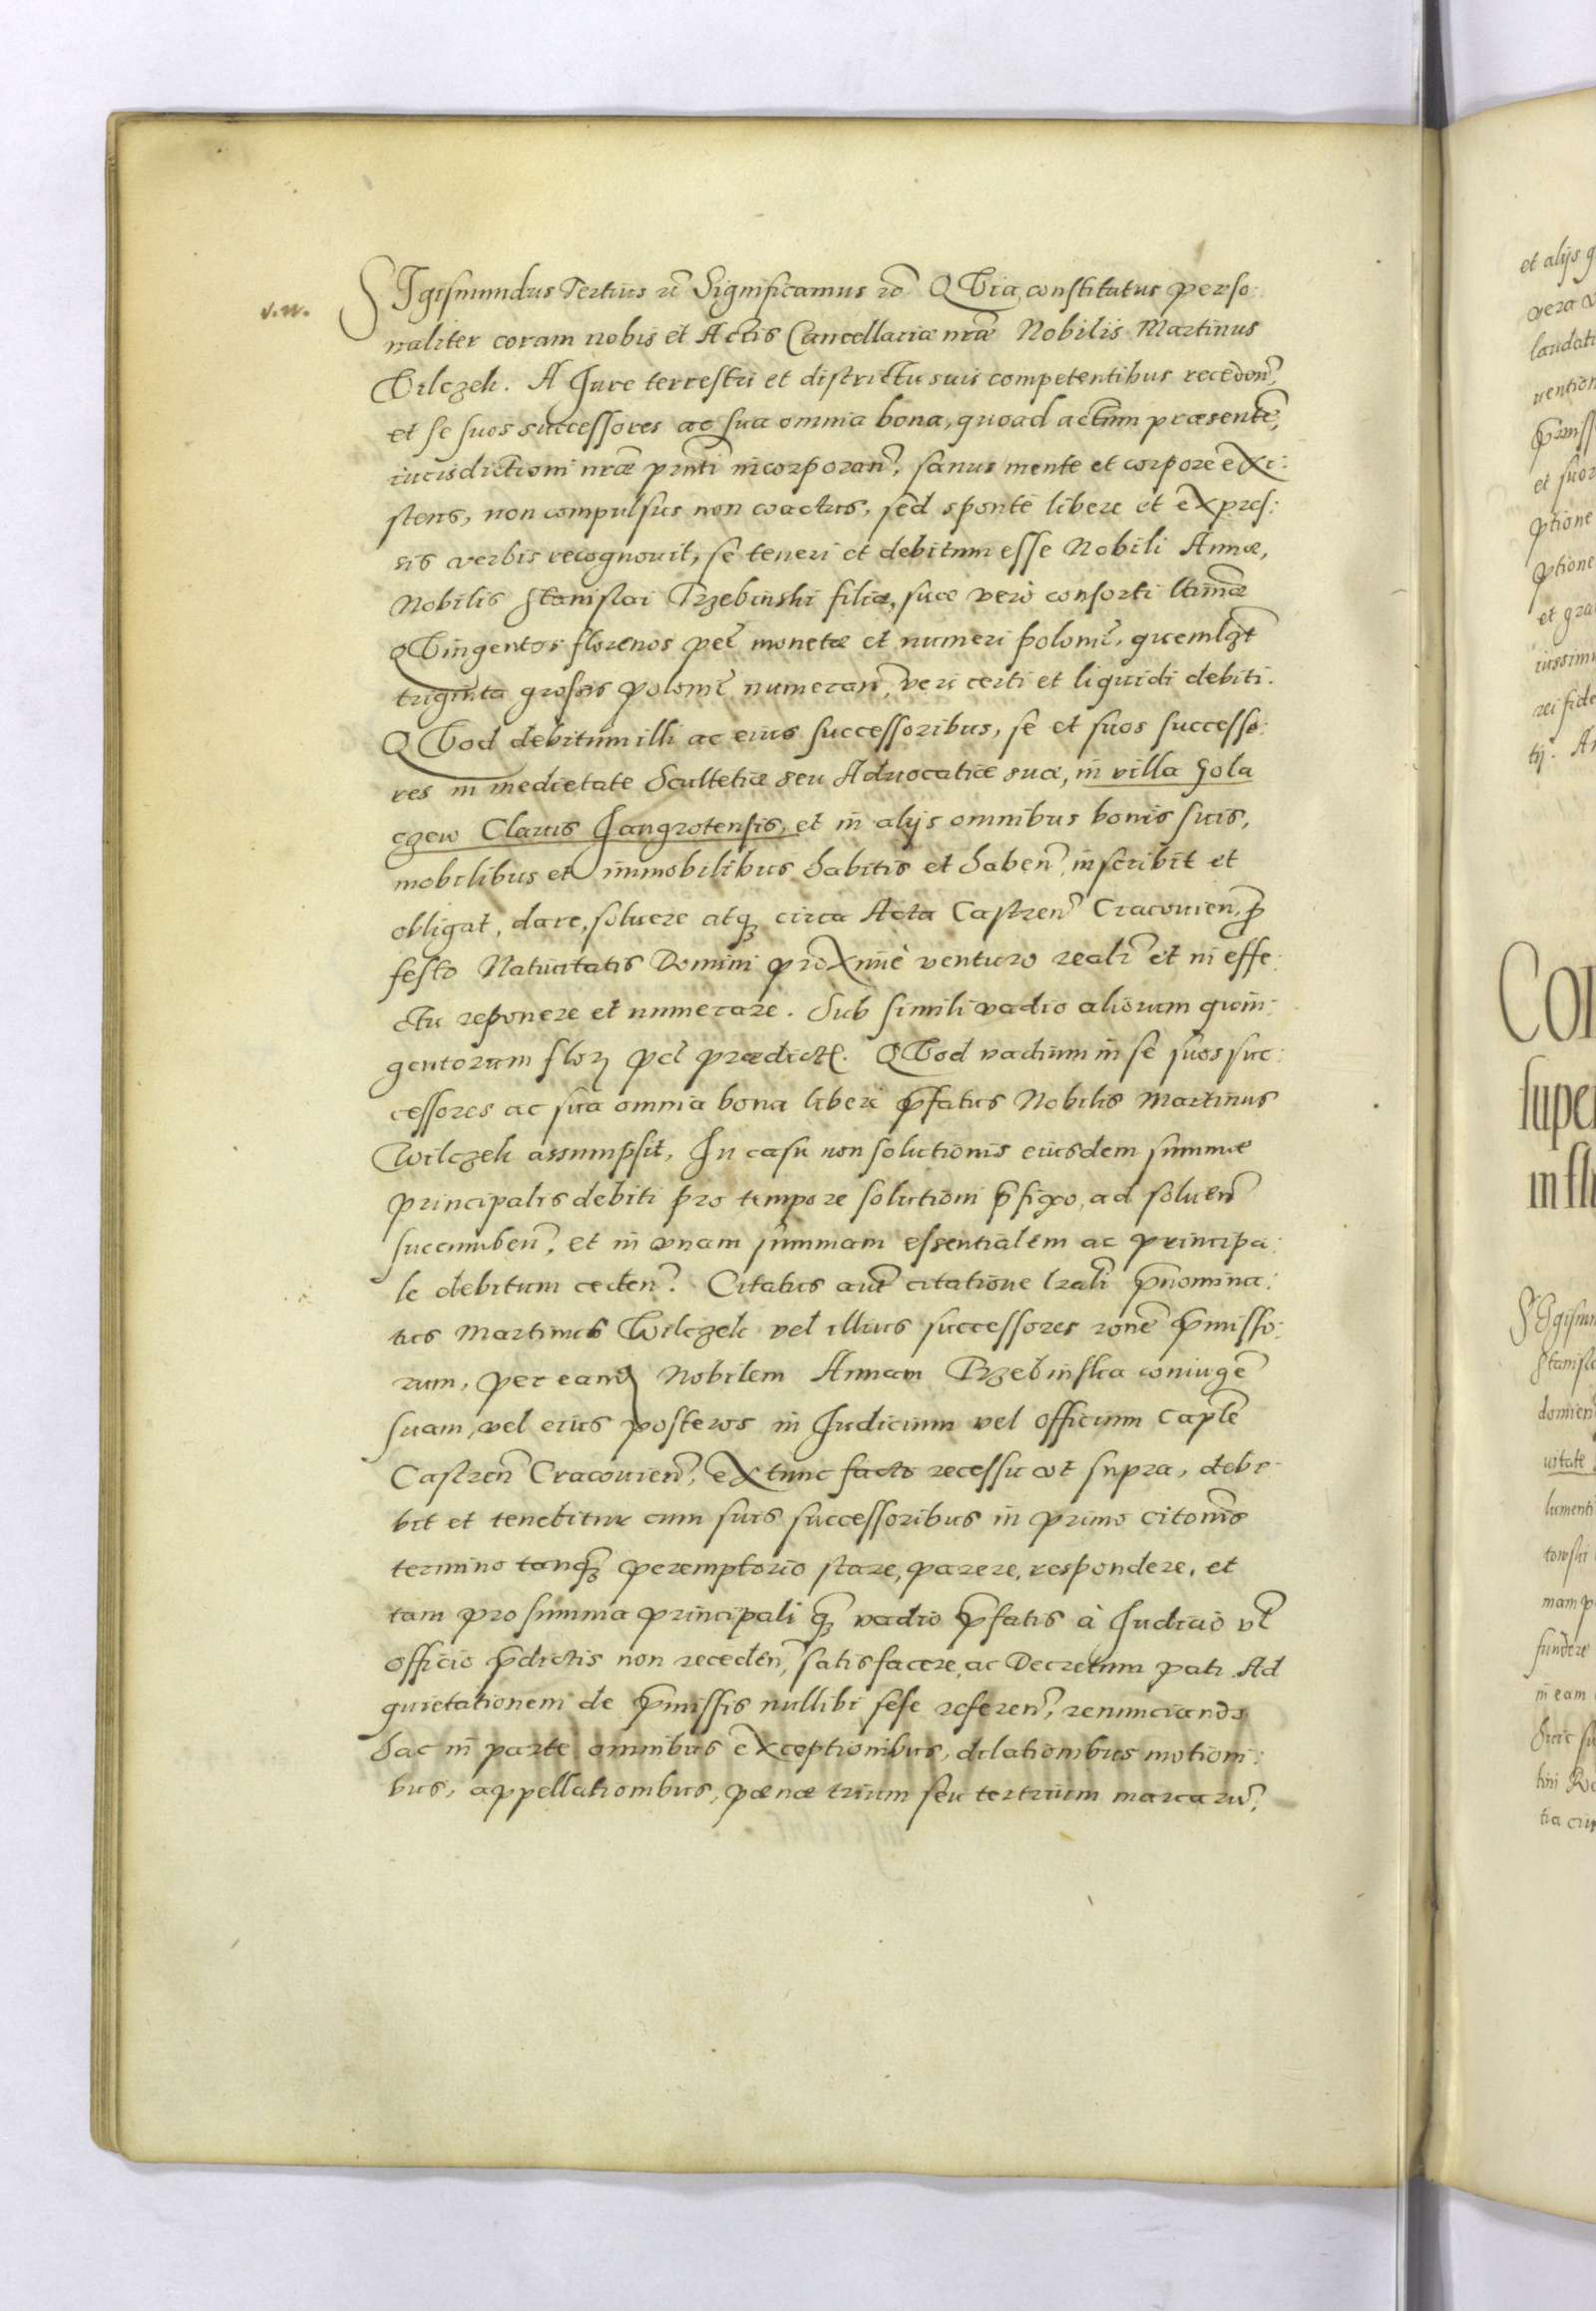 v. w.
SIgismundus Tertius rc̄ Significamus rc̄ QVia constitutus perso:
naliter coram nobis et Actis Cancellariæ nr̄æ Nobilis Martinus
Wilczek. A Jure terrestri et districtu suis competentibus receden̄,
et se suos successores ac sua omnia bona, quoad actum præsentē,
iurisdictioni nr̄æ pn̄ti incorporan̄, sanus mente et corpore exi:
stens, non compulsus non coactus, sed sponte libere et expres:
sis verbis recognovit, se teneri et debitum esse Nobili Annæ,
Nobilis Stanislai Trzebinski filiæ, suæ verò consorti ltimæ
QVingentos florenos pecł monetæ et numeri polonił, quemlȝt
triginta grossis polonił numeran̄, veri certi et liquidi debiti.
QVod debitum illi ac eius successoribus, se et suos successo:
res in medietate Scultetiæ seu Advocatiæ suæ, in villa Gola
czew Clavis Jangrotensis, et in alijs omnibus bonis suis,
mobilibus et immobilibus habitis et haben̄, inscribit et
obligat, dare, soluere atqȝ circa Acta Castren̄ Cracouien̄, p̄
festo Natiuitatis Domini proximè venturo realr̄ et in effe:
ctu reponere et numerare. Sub simili vadio aliorum quin:
gentorum florȝ pecł prædictł. QVod vadium in se suos suc:
cessores ac sua omnia bona liberè p̄fatus Nobilis Martinus
Wilczek assumpsit, In casu non solutionis eiusdem summæ
principalis debiti pro tempore solutioni p̄fixo, ad soluen̄
succumben̄, et in vnam summam essentialem ac principa:
le debitum ceden̄. Citatus aut̄ citatione lrāli p̄nomina:
tus Martinus Wilczek vel illius successores ron̄e p̄misso:
rum, per eand Nobilem Annam Trzebinska coniugē
suam, vel eius posteros in Judicium vel officium Capl̄e
Castren̄ Cracouien̄, ex tunc facto recessu vt supra, debe
bit et tenebitur cum suis successoribus in primo citōnis
termino tanqȝ peremptorio stare, parere, respondere, et
tam pro summa principali qȝ vadio p̄fatis à Judicio vł
officio p̄dictis non receden̄, satisfacere, ac Decretum pati. Ad
quietationem de p̄missis nullibi sese referen̄, renunciando
hac in parte omnibus exceptionibus, dilationibus motioni:
bus, appellationibus, pœnæ trium seu tertrium marcarū,